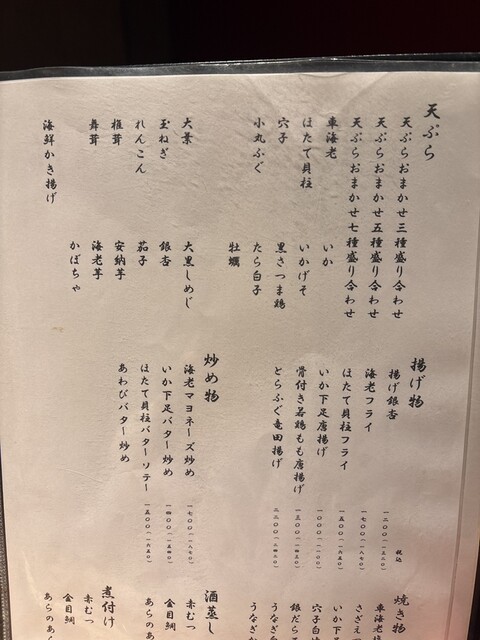 天ぷら
天ぷらおまかせ三種盛り合わせ
天ぷらおまかせ五種盛り合わせ
天ぷらおまかせ七種盛り合わせ
車海老
いか
ほたて貝柱
いかげそ
穴子
黒さつま鶏
小丸ふぐ
たら白子
牡蠣
大葉
大黒しめじ
玉ねぎ
銀杏
れんこん
茄子
椎茸
安納芋
舞茸
海老芋
かぼちゃ
海鮮かき揚げ
揚げ物
税込
揚げ銀杏 一二〇〇(一三二〇)
海老フライ 一七〇〇(一八七〇)
ほたて貝柱フライ 一五〇〇(一六五〇)
いか下足唐揚げ 一〇〇〇(一一〇〇)
骨付き若鶏もも唐揚げ
とらふぐ竜田揚げ 二二〇〇(二四二〇)
炒め物
海老マヨネーズ炒め 一七〇〇(一八七〇)
いか下足バター炒め 一四〇〇(一五四〇)
ほたて貝柱バターソテー 一五〇〇(一六五〇)
あわびバター炒め
焼き物
車海老
さざえ
いか下
穴子白
銀だら
うなぎ
うなぎ
酒蒸し
赤むつ
金目鯛
あらのあ
煮付け
赤むつ
金目鯛
あらのあら